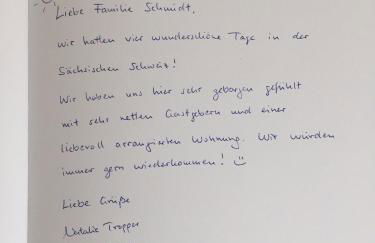 Liebe Familie Schmidt,
wir hatten vier wunderschöne Tage in der
Sächsischen Schweiz!
Wir haben uns hier sehr geborgen gefühlt
mit sehr netten Gastgebern und einer
liebevoll arrangierten Wohnung. Wir würden
immer gern wiederkommen! ☺
Liebe Grüße
Natalie Tropper